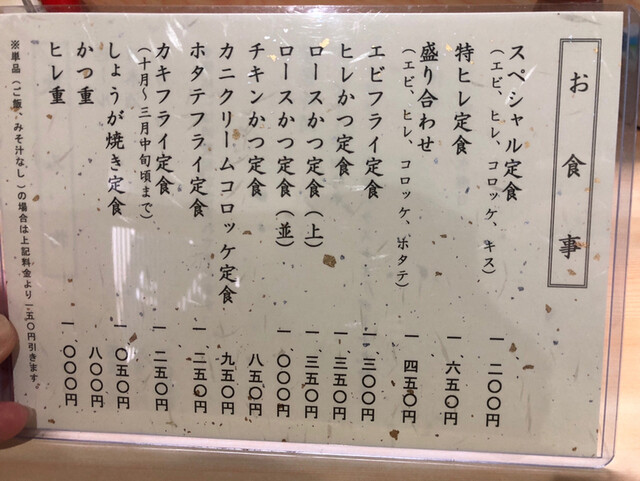 お食事
スペシャル定食 一、二〇〇円
(エビ、ヒレ、コロッケ、キス)
特ヒレ定食 一、六五〇円
盛り合わせ 一、四五〇円
(エビ、ヒレ、コロッケ、ホタテ)
エビフライ定食 一、三〇〇円
ヒレかつ定食 一、三五〇円
ロースかつ定食(上) 一、三五〇円
ロースかつ定食(並) 一、〇〇〇円
チキンかつ定食 八五〇円
カニクリームコロッケ定食 九五〇円
ホタテフライ定食 一、二五〇円
カキフライ定食 一、二五〇円
(十月～三月中旬頃まで)
しょうが焼き定食 一、〇五〇円
かつ重 八〇〇円
ヒレ重 一、〇〇〇円
※単品(ご飯、みそ汁なし)の場合は上記料金より一五〇円引きます。